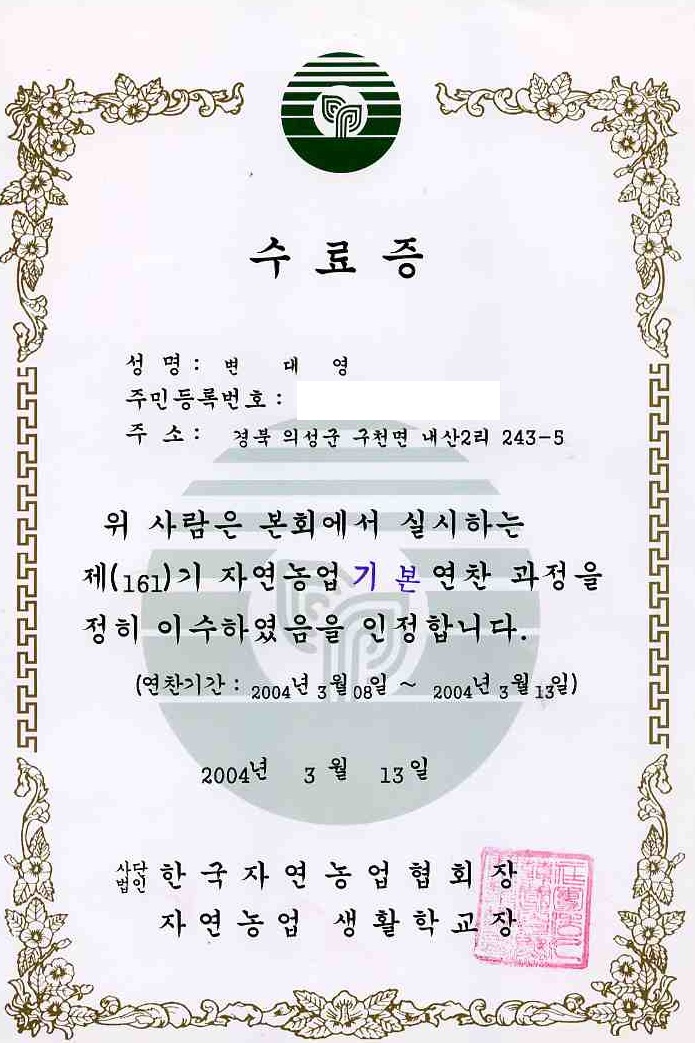 수 료 증
성 명 : 변 대 영
주민등록번호 :
주 소 : 경북 의성군 구천면 내산2리 243-5
위 사람은 본회에서 실시하는
제(161)기 자연농업 기 본 연찬 과정을
정히 이수하였음을 인정합니다.
(연찬기간 : 2004년 3월 08일 ~ 2004년 3월 13일)
2004년 3 월 13 일
사단법인 한 국 자 연 농 업 협 회 장
자 연 농 업 생 활 학 교 장